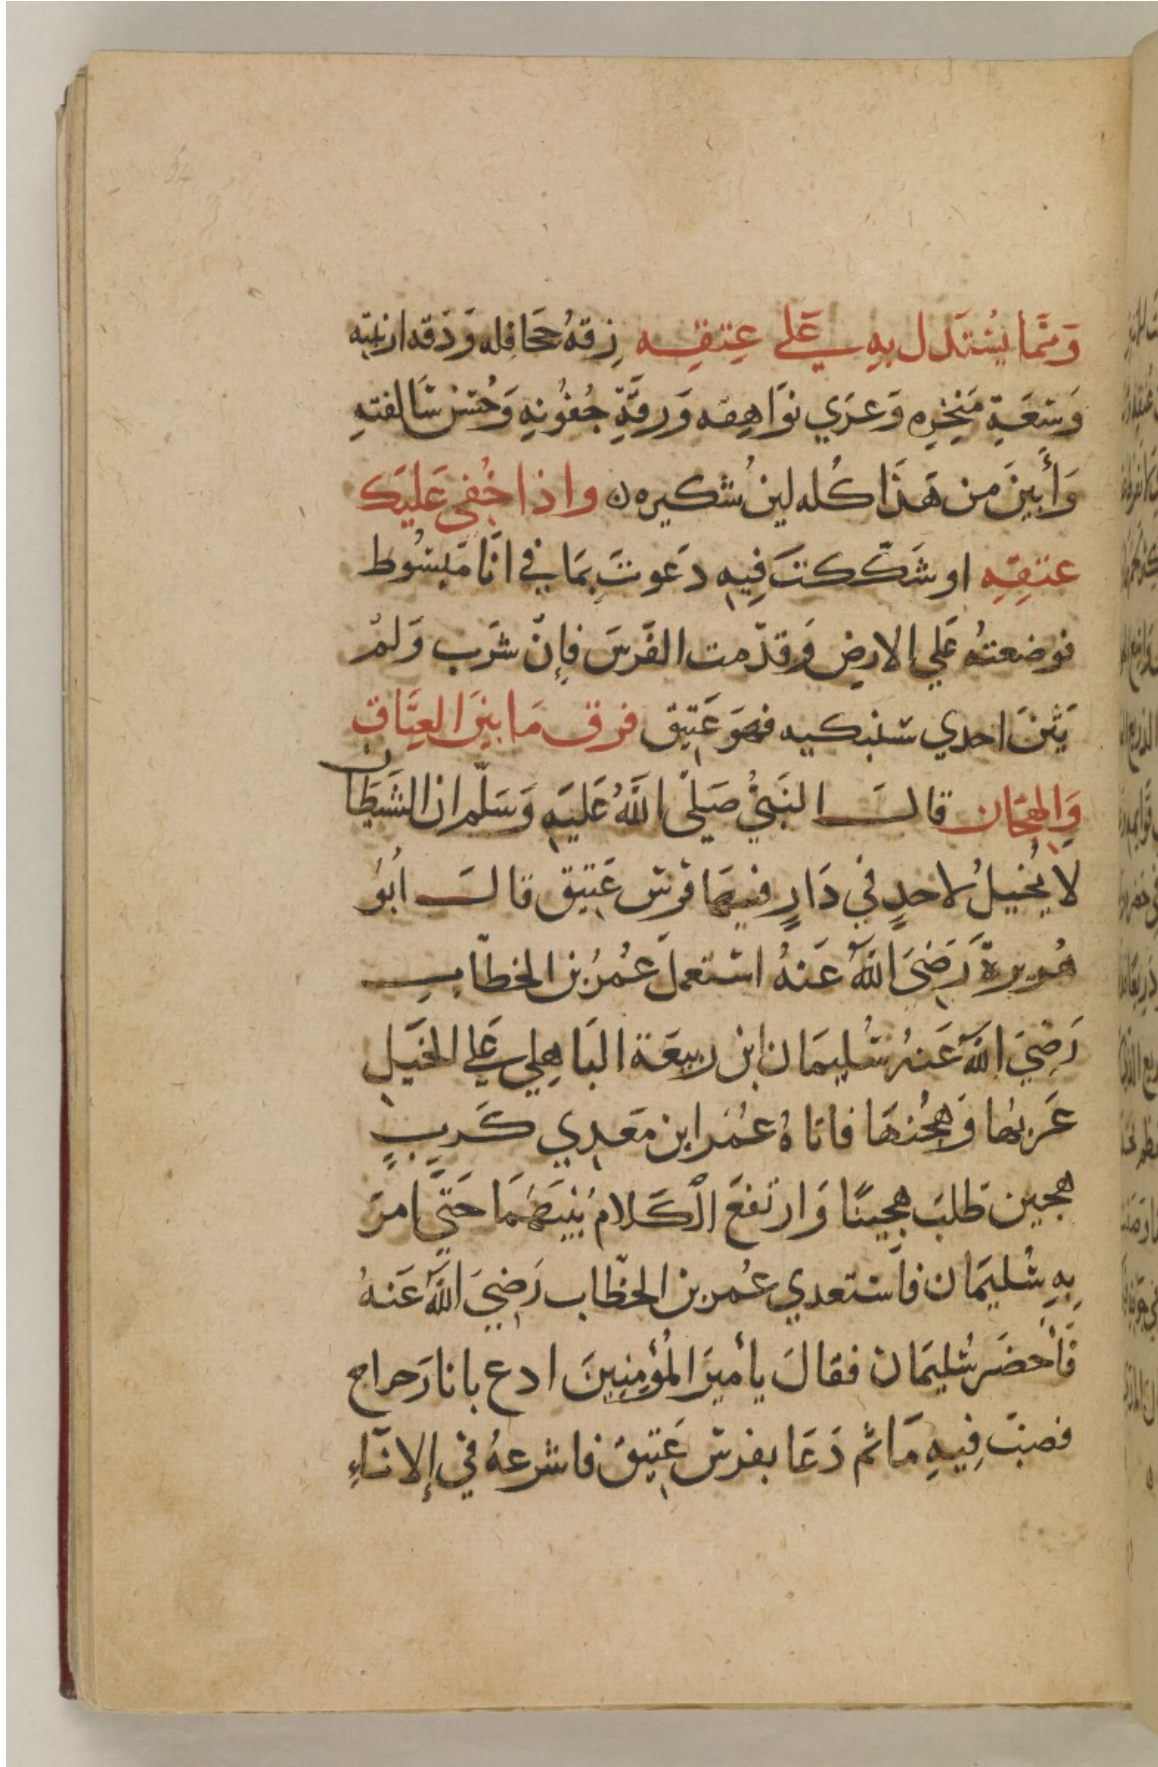 وَممَّا يُسْتَدَل بِهِ عَلي عِتقِهِ رِقهُ جَحَافله وَدَقه ارنبته
وَسَعَةِ مَنخِرِه وَعرَي نوَاهِقه وَرقَّةِ جُفُونِهِ وَحُسْن سَالفتهِ
وَأَبيَنَ من هَذَا كُله لينُ شكيره واذا خُفي عَليَك
عتقِهِ او شَكّكتَ فِيهِ دَعوتَ بمَا في انَا مَبسُوط
فوضعتهُ عَلي الارضِ وَقدّمت الفَرسَ فإِنّ شرَب وَلمْ
يَثنَ احدي سنبكيه فهوَ عَتِيق فرق مَا بينَ العِتَاق
وَالهِجَان قالَ النَبيُّ صَلّى اللهُ عَليَهِ وَسَلّم ان الشَيطَان
لا يُخيلُ لاحدٍ في دَارٍ فيهَا فرَس عَتِيق قالَ ابُو
هُريرةَ رَضيَ اللهُ عَنهُ استعملَ عُمرُ بن الخطّاب
رَضيَ اللهُ عَنهُ سُليمَان ابن ربيعَة البَاهِلي عَلي الخَيلِ
عَربها وَهُجُنهَا فاتاهُ عمُرَ ابن مَعدي كَرِبٍ
هجين طلبَ هجينًا وَارتفعَ الكَلامُ بَينَهُمَا حَتَّي امرَ
بِهِ سُليمَان فاستعدي عمُر بن الخطّاب رَضِيَ اللهُ عَنهُ
فَأحضَر سُليمَان فقالَ يأميرَ المُؤمِنِينَ ادع بانا رَحراح
فصبّ فِيهِ مَا ثم دَعَا بفرس عَتِيقَ فاشرعهُ في الانَاءِ